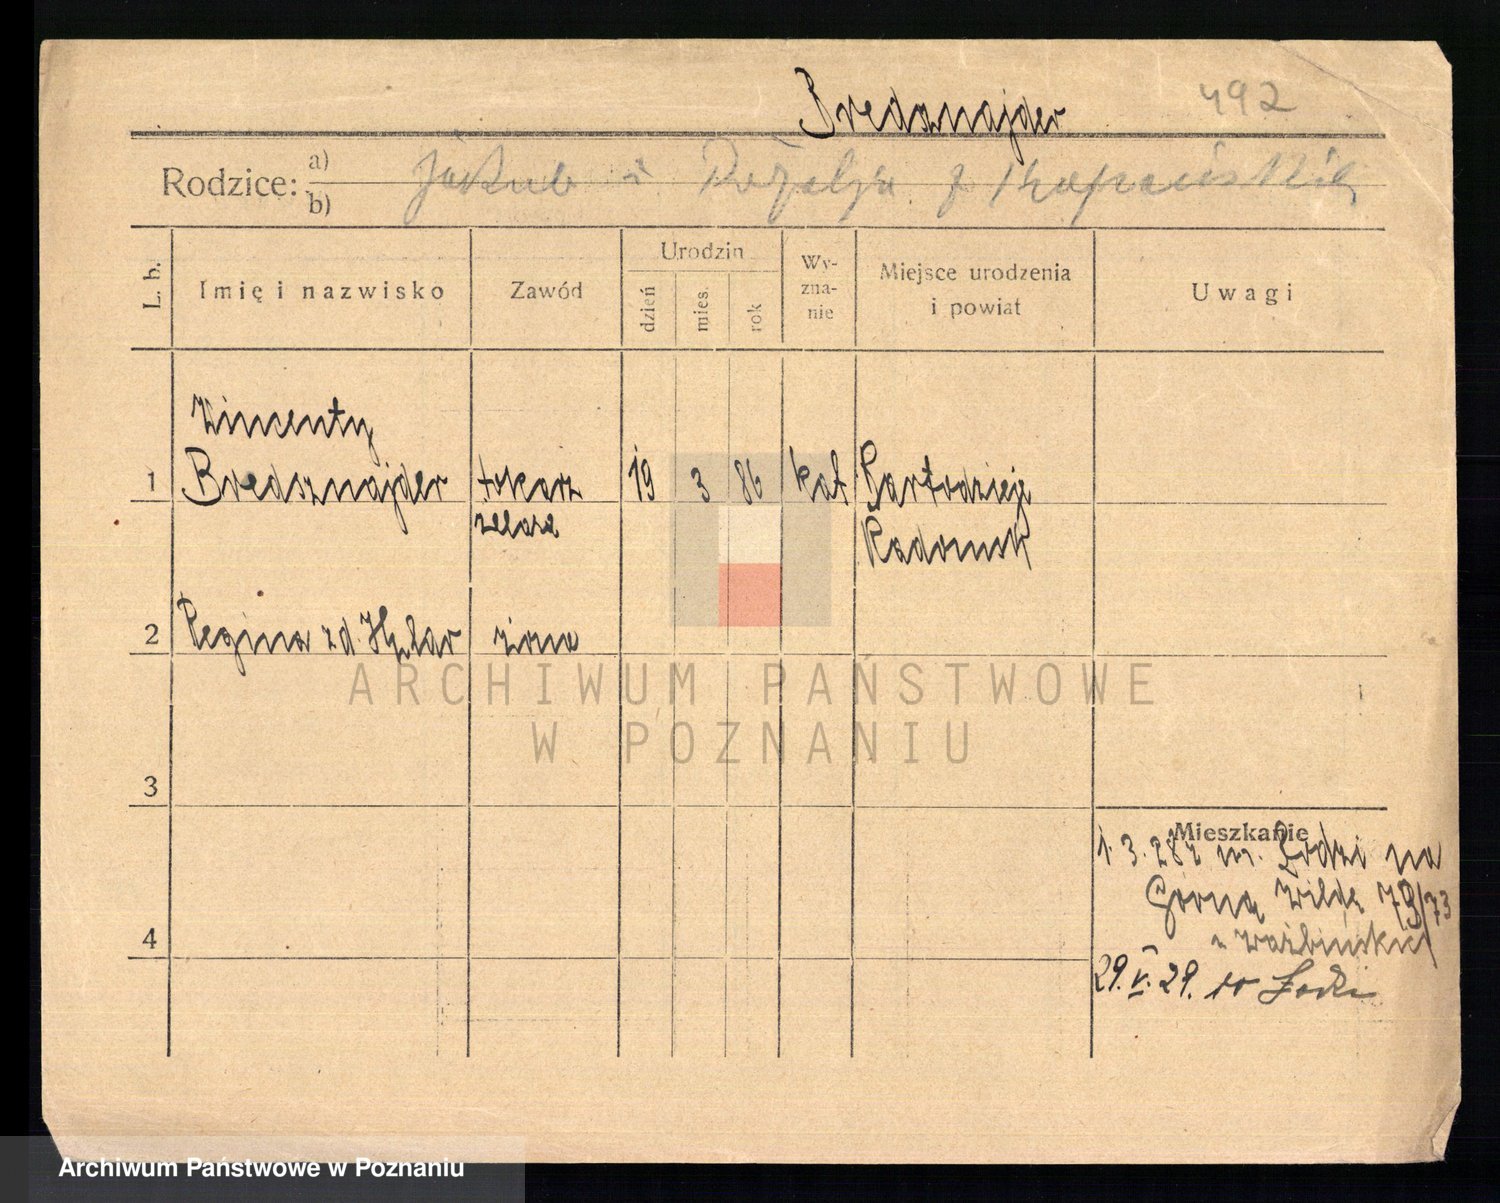 Bredsznajder 492
Rodzice: a) b) Jakub i Rozalja z Kopańskich
L. b.
Imię i nazwisko
Zawód
Urodzin
dzień
mies.
rok
Wy-
zna-
nie
Miejsce urodzenia
i powiat
Uwagi
Wincenty
1 Bredsznajder tokarz 19 3 86 kat Bartodzieje
żelaza Radomsk
2 Regina zd. żona
ARCHIWUM PAŃSTWOWE
W POZNANIU
3
Mieszkanie
1.3.28 z m. Łodzi na
Górna Wilda 79/73
4
29.V.29. do Łodzi
Archiwum Państwowe w Poznaniu